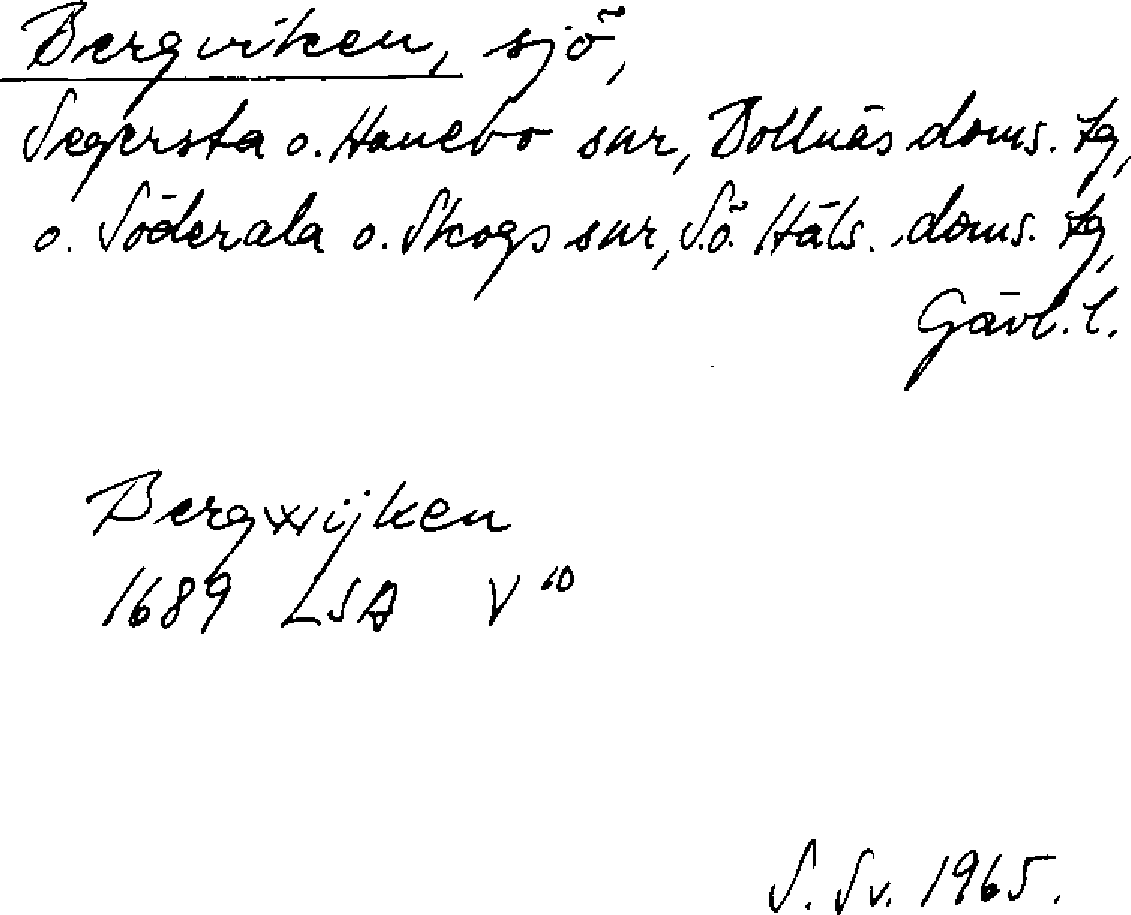 Bergviken, sjö,
Segersta o. Hanebo snr, Bollnäs doms. tg,
o. Söderala o. Skogs snr, S.ö. Häls. doms. tg,
Gävl. l.
Bergwijken
1689 LSA V 10
S. Sv. 1965.